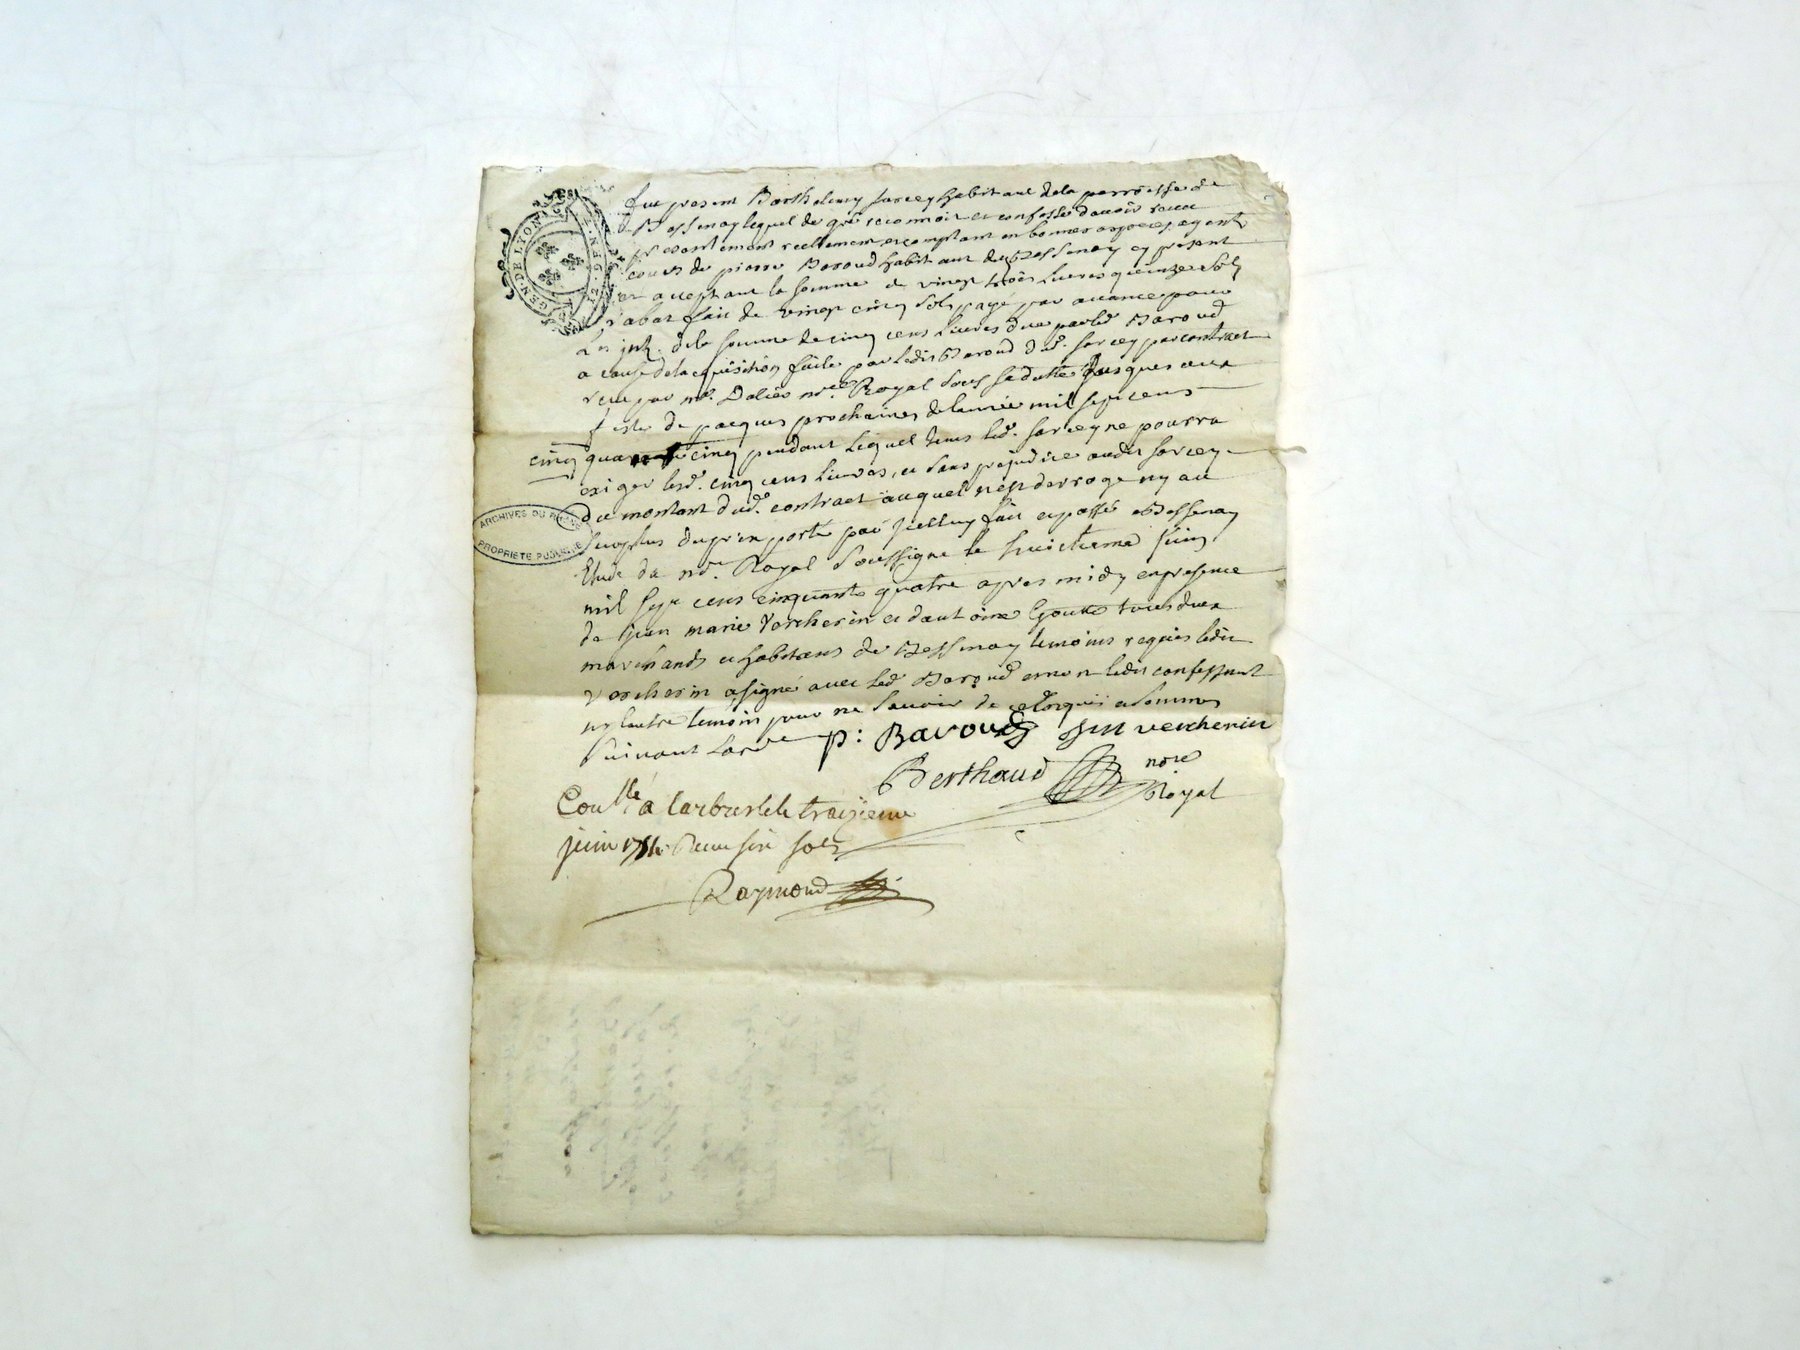 GEN. DE LYON
fut present Barthelemy Sarcey habitant de la parroisse de
Bessenay lequel de gré reconnoit et confesse davoir receu
presentement reellement et comptant en bonnes especes ayant
cours de pierre Baroud habitant de Bessenay cy present
et acceptant la somme de vingt trois livres quinze sols
rabat fait de vingt cinq sols payé par avance pour
Les de la somme de cinq cens livres due par led Baroud
a cause de lacquisition faite par ledit Baroud dud. Sarcey par contract
receu par me. Dalier nre. Royal sous sa datte jusques aux
feste de pacques prochaines de lannée mil sept cens
cinquante cinq pendant lequel tems led. Sarcey ne pourra
exiger lesd. cinq cens livres, et sans prejudice audit Sarcey
du montant dud. contract auquel nest derrogé ny au
surplus du prix porté par jcelluy fait et passé a Bessenay
Etude du nre. Royal soussigné le huictieme juin
mil sept cens cinquante quatre apres midy en presence
de jean marie Vercherin et dantoine Goutte tous deux
marchands et habitans de Bessenay temoins requis ledit
Vercherin a signé avec led Baroud et non ledit confessant
ny lautre temoin pour ne savoir de ce enquis et sommes
suivant lord.ce P: Baroud JM vercherin
Berthaud nore
Royal
ARCHIVES DU RHONE
PROPRIETE PUBLIQUE
Coullé a larbresle le treizieme
juin 1754 Receu six sols
Raymond